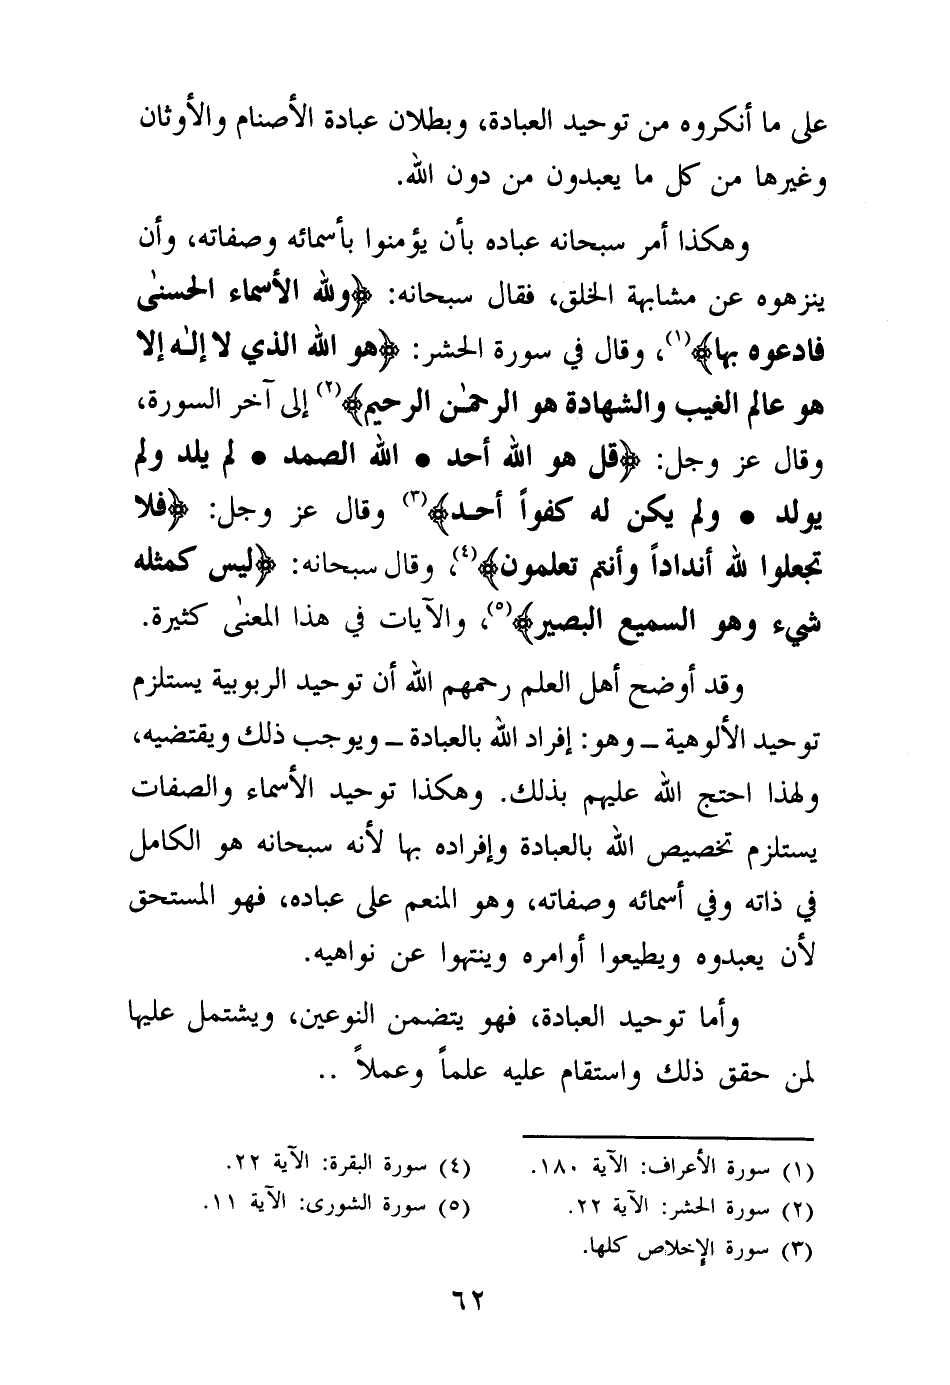 على ما أنكروه من توحيد العبادة، وبطلان عبادة الأصنام والأوثان
وغيرها من كل ما يعبدون من دون الله.
وهكذا أمر سبحانه عباده بأن يؤمنوا بأسمائه وصفاته، وأن
ينزهوه عن مشابهة الخلق، فقال سبحانه: ﴿ولله الأسماء الحسنىٰ
فادعوه بها﴾(١)، وقال في سورة الحشر: ﴿هو الله الذي لا إلـٰه إلا
هو عالم الغيب والشهادة هو الرحمـٰن الرحيم﴾(٢) إلى آخر السورة،
وقال عز وجل: ﴿قل هو الله أحد • الله الصمد • لم يلد ولم
يولد • ولم يكن له كفواً أحـد﴾(٣) وقال عز وجل: ﴿فلا
تجعلوا لله أنداداً وأنتم تعلمون﴾(٤)، وقال سبحانه: ﴿ليس كمثله
شيء وهو السميع البصير﴾(٥)، والآيات في هذا المعنىٰ كثيرة.
وقد أوضح أهل العلم رحمهم الله أن توحيد الربوبية يستلزم
توحيد الألوهية ـ وهو: إفراد الله بالعبادة ـ ويوجب ذلك ويقتضيه،
ولهذا احتج الله عليهم بذلك. وهكذا توحيد الأسماء والصفات
يستلزم تخصيص الله بالعبادة وإفراده بها لأنه سبحانه هو الكامل
في ذاته وفي أسمائه وصفاته، وهو المنعم على عباده، فهو المستحق
لأن يعبدوه ويطيعوا أوامره وينتهوا عن نواهيه.
وأما توحيد العبادة، فهو يتضمن النوعين، ويشتمل عليها
لمن حقق ذلك واستقام عليه علماً وعملاً ..
(١) سورة الأعراف: الآية ١٨٠.
(٢) سورة الحشر: الآية ٢٢.
(٣) سورة الإخلاص كلها.
(٤) سورة البقرة: الآية ٢٢.
(٥) سورة الشورى: الآية ١١.
٦٢